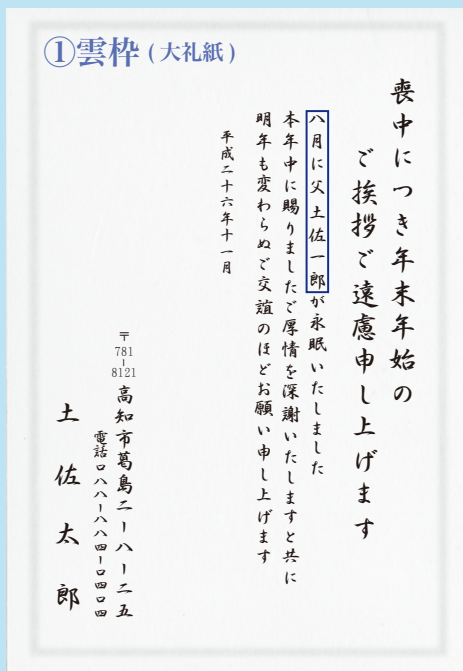 ①雲枠(大礼紙)
喪中につき年末年始の
ご挨拶ご遠慮申し上げます
八月に父 土佐一郎が永眠いたしました
本年中に賜りましたご厚情を深謝いたしますと共に
明年も変わらぬご交誼のほどお願い申し上げます
平成二十六年十一月
〒781-8121
高知市葛島二ー八ー二五
電話〇八八ー八八四ー〇四〇四
土佐太郎